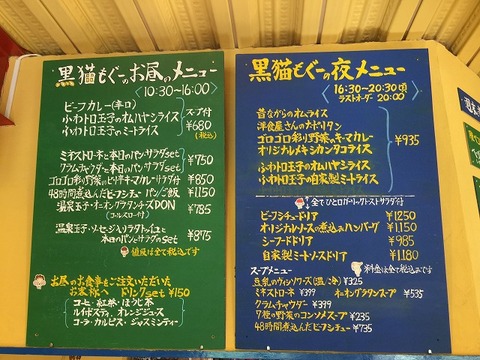 黒猫もぐーのお昼のメニュー
〈10:30~16:00〉
ビーフカレー(辛口)
ふわトロ玉子のオムハヤシライス
ふわトロ玉子のミートライス
スープ付
¥680
(税込)
ミネストローネと本日のパン・サラダset ¥750
クラムチャウダーと本日のパン・サラダset
ゴロゴロ彩り野菜のピリ辛キーマカレー・サラダ付 ¥850
48時間煮込んだビーフシチュー パンorご飯 ¥1,150
温泉玉子・オニオングラタンチーズDON ¥785
(コールスロー付)
温泉玉子・ソーセージ入りラタトゥイユと
本日のパンとサラダset ¥895
値段は全て税込です
お昼のお食事をご注文いただいた
お客様へ ドリンクset ¥150
コーヒー・紅茶・ほうじ茶
ルイボスティ・オレンジジュース
コーラ・カルピス・ジャスミンティー
黒猫もぐーの夜メニュー
〈16:30~20:30頃〉
ラストオーダー 20:00
昔ながらのオムライス
洋食屋さんのナポリタン
ゴロゴロ彩り野菜のキーマカレー
オリジナルメキシカンタコライス
ふわトロ玉子のオムハヤシライス
ふわトロ玉子の自家製ミートライス
¥935
全てひとロガーリックトースト・サラダ付
ビーフシチュードリア ¥1,250
オリジナルソースの煮込みハンバーグ ¥1,150
シーフードドリア ¥985
自家製ミートソースドリア ¥1,180
スープメニュー
料金は全て税込みです
豆乳のヴィシソワーズ(温・冷) ¥325
ミネストローネ ¥399
オニオングラタンスープ ¥535
クラムチャウダー ¥399
7種の野菜のコンソメスープ ¥235
48時間煮込んだビーフシチュー ¥735